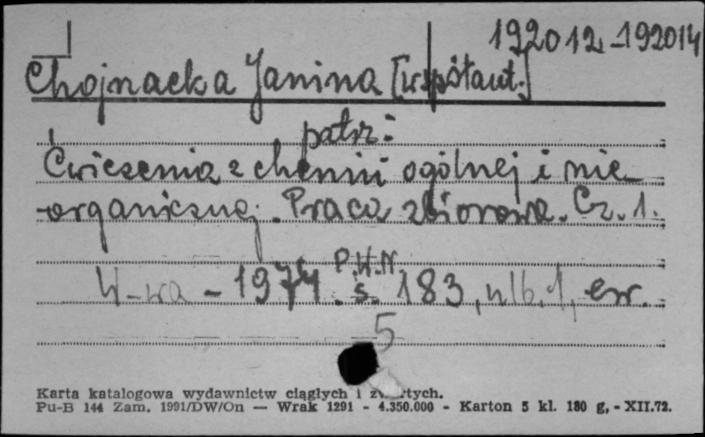 192012-192014
Chojnacka Janina [współaut.]
patrz:
Ćwiczenia z chemii ogólnej i nie-
organicznej. Praca zbiorowa. Cz. 1.
P.W.N
W-wa - 1974. s. 183, nlb. 1, err.
5
Karta katalogowa wydawnictw ciągłych i zwartych.
Pu-B 144 Zam. 1991/DW/On — Wrak 1291 - 4.350.000 - Karton 5 kl. 180 g, - XII.72.